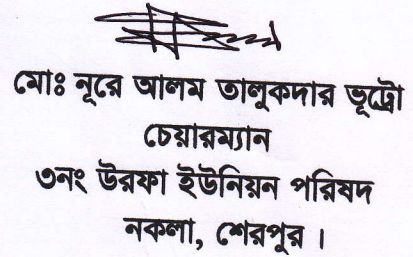 মোঃ নূরে আলম তালুকদার ভূট্টো
চেয়ারম্যান
৩নং উরফা ইউনিয়ন পরিষদ
নকলা, শেরপুর ।